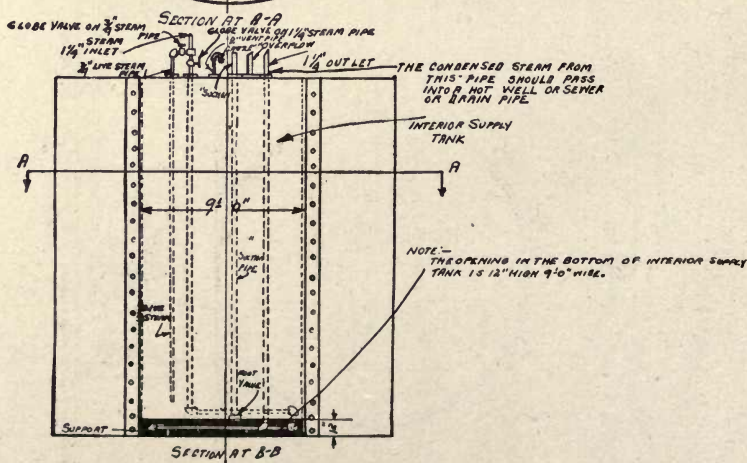 SECTION AT A-A
GLOBE VALVE ON 3/4" STEAM PIPE
GLOBE VALVE ON 1 1/4" STEAM PIPE
1 1/4" STEAM INLET
VENT PIPE
OVERFLOW
1 1/4" OUTLET
3/4" LIVE STEAM PIPE
SUCTION
THE CONDENSED STEAM FROM
THIS PIPE SHOULD PASS
INTO A HOT WELL OR SEWER
OR DRAIN PIPE
INTERIOR SUPPLY
TANK
A
A
SUCTION
PIPE
NOTE:-
THE OPENING IN THE BOTTOM OF INTERIOR SUPPLY
TANK IS 12" HIGH 9'-0" WIDE.
LIVE
STEAM
FOOT
VALVE
SUPPORT
12"
SECTION AT B-B